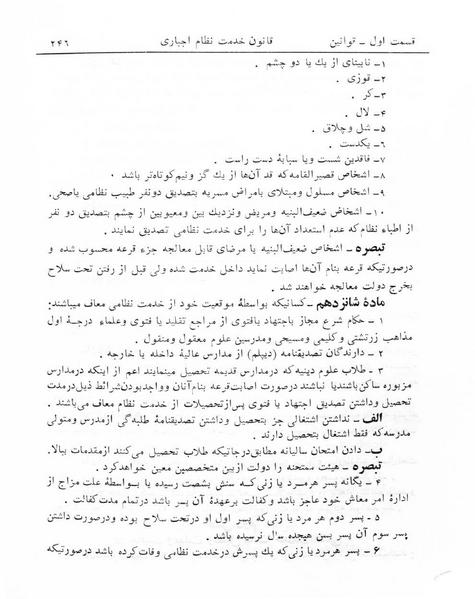 قسمت اول ـ قوانین قانون خدمت نظام اجباری ۲۴۶
۱ـ نابینای از یك یا دو چشم .
۲ـ قوزی .
۳ـ کر .
۴ـ لال .
۵ـ شل وچلاق .
۶ـ یکدست .
۷ـ فاقدین شست ویا سبابهٔ دست راست .
۸ـ اشخاص قصیرالقامه‌که قد آن‌ها از یك گز ونیم‌کوتاه‌تر باشد
۹ـ اشخاص مسلول ومبتلای بامراض مسریه بتصدیق دونفر طبیب نظامی یاصحی.
۱۰ـ اشخاص ضعیف‌البنیه ومریض ونزدیك بین ومعیوبین از چشم بتصدیق دو نفر
از اطباء نظام‌که عدم استعداد آن‌ها را برای خدمت نظامی تصدیق نمایند .
تبصره ـ اشخاص ضعیف‌البنیه یا مرضای قابل معالجه جزء قرعه محسوب شده و
درصورتیکه قرعه بنام آن‌ها اصابت نماید داخل خدمت شده ولی قبل از رفتن تحت سلاح
بخرج دولت معالجه خواهند شد .
مادهٔ شانزدهم ـ کسانیکه بواسطهٔ موقعیت خود از خدمت نظامی معاف میباشند:
۱ ـ حکام شرع مجاز باجتهاد یافتوی از مراجع تقلید یا فتوی وعلماء درجهٔ اول
مذاهب زرتشتی وکلیمی ومسیحی ومدرسین علوم معقول ومنقول .
۲ ـ دارندگان تصدیقنامه (دیپلم) از مدارس عالیهٔ داخله یا خارجه .
۳ ـ طلاب علوم دینیه‌که درمدارس قدیمه تحصیل مینمایند اعم از اینکه درمدارس
مزبوره ساکن‌باشندیا نباشند درصورت اصابت‌قرعه بنام‌آنان وواجدبودن‌شرائط ذیل‌درمدت
تحصیل وداشتن تصدیق اجتهاد یا فتوی پس‌ازتحصیلات از خدمت نظام معاف می‌باشند .
الف ـ نداشتن اشتغالی جز بتحصیل وداشتن تصدیقنامهٔ طلبه‌گی ازمدرس ومتولی
مدرسه‌که فقط اشتغال بتحصیل دارند .
ب‌ـ دادن امتحان سالیانه مطابق‌درجاتیکه طلاب تحصیل می‌کنند ازمقدمات ببالا.
تبصره ـ هیئت ممتحنه را دولت ازبین متخصصین معین خواهدکرد .
۴ ـ یگانه پسر هرمرد یا زنی‌که سنش بشصت رسیده یا بواسطهٔ علت مزاج از
ادارهٔ امر معاش خود عاجز باشد وکفالت برعهدهٔ آن پسر باشد درتمام مدت‌کفالت .
۵ ـ پسر دوم هر مرد یا زنی‌که پسر اول او درتحت سلاح بوده ودرصورت داشتن
پسر سوم آن پسر بسن هیجده سال نرسیده باشد .
۶ ـ پسر هرمرد یا زنی‌که یك پسرش درخدمت نظامی وفات کرده باشد درصورتیکه